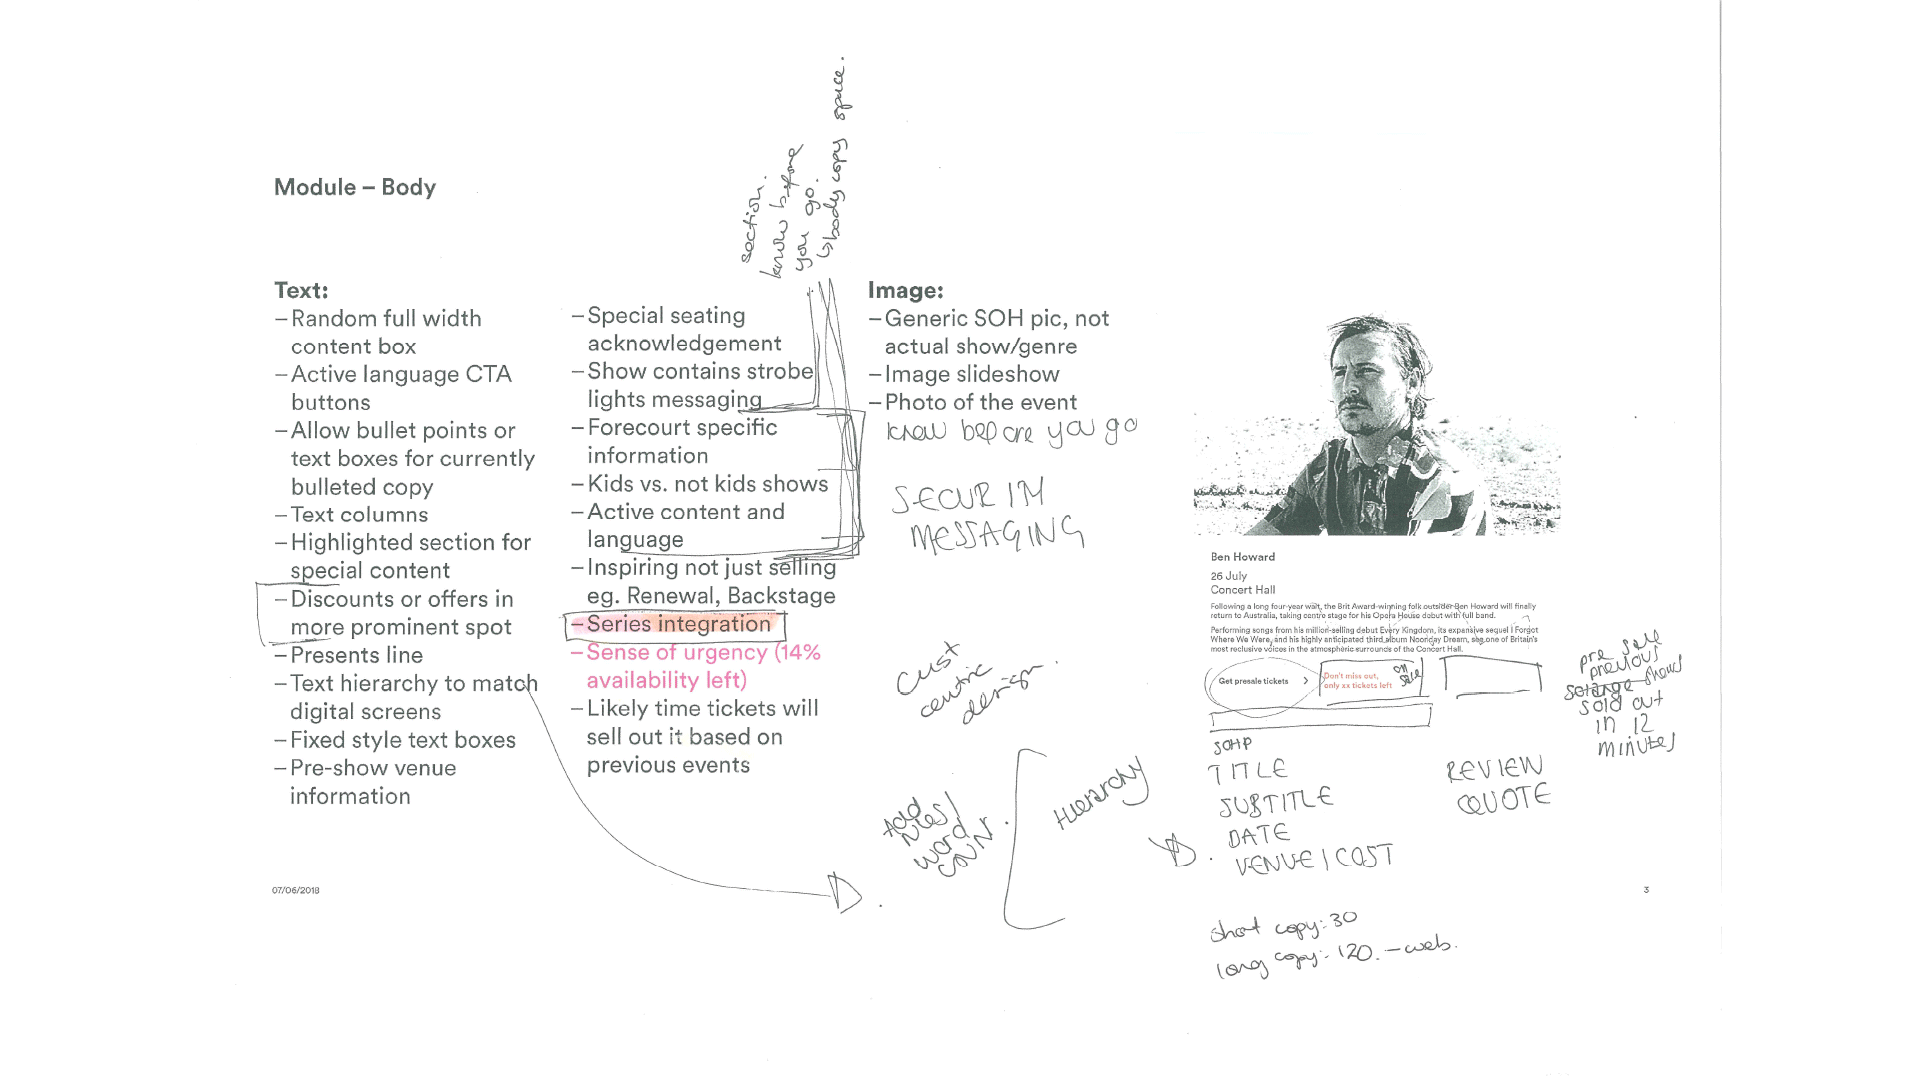 Module – Body
section.
know before
you go.
↳body copy space.
Text:
–Random full width
content box
–Active language CTA
buttons
–Allow bullet points or
text boxes for currently
bulleted copy
–Text columns
–Highlighted section for
special content
–Discounts or offers in
more prominent spot
–Presents line
–Text hierarchy to match
digital screens
–Fixed style text boxes
–Pre-show venue
information
–Special seating
acknowledgement
–Show contains strobe
lights messaging
–Forecourt specific
information
–Kids vs. not kids shows
–Active content and
language
–Inspiring not just selling
eg. Renewal, Backstage
–Series integration
–Sense of urgency (14%
availability left)
–Likely time tickets will
sell out it based on
previous events
Image:
–Generic SOH pic, not
actual show/genre
–Image slideshow
–Photo of the event
know before you go
MESSAGING
cust
centric
design.
Add
rules/
word
count.
Hierarchy
Ben Howard
26 July
Concert Hall
Following a long four-year wait, the Brit Award-winning folk outsider Ben Howard will finally
return to Australia, taking centre stage for his Opera House debut with full band.
Performing songs from his million-selling debut Every Kingdom, its expansive sequel I Forgot
Where We Were, and his highly anticipated third album Noonday Dream, see one of Britain's
most reclusive voices in the atmospheric surrounds of the Concert Hall.
Get presale tickets >
Don't miss out,
only xx tickets left
on
sale
pre sale
previous
solange shows
sold out
in 12
minutes
SOHP
TITLE
SUBTITLE
DATE
VENUE / COST
REVIEW
QUOTE
short copy: 30
long copy: 120. – web.
07/06/2018
3